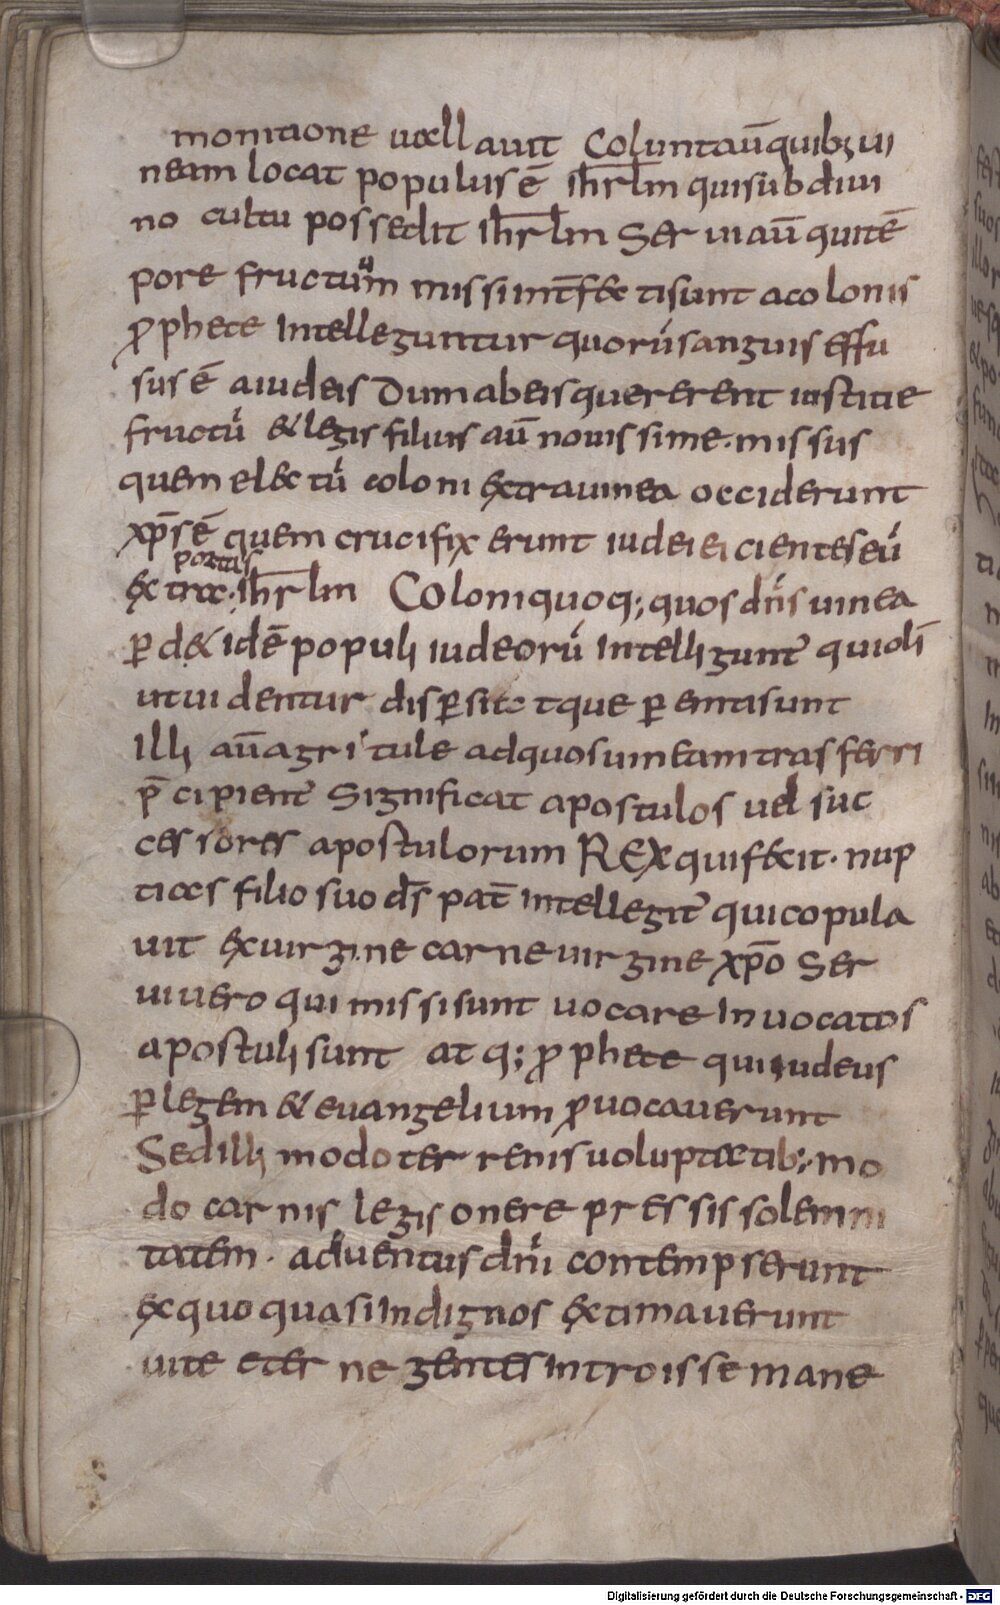 monitione uallauit Coluntaū quibꝫ ui
neam locat populus ē ihrłm qui sub diui
no cultu possedit ihrłm Ser ui aū qui tē
pore fructuum missi int̄fecti sunt a colonis
ꝓphete Intelleguntur quorū sanguis effu
sus ē a iudeis Dum ab eis quererent iustitie
fructū & legis filius aū nouissime. missus
quem electū coloni extra uinea occiderunt
xp̄s ē quem crucifixerunt iudei eicientes eū
extra portas ihrłm Coloni quoq; quos dn̄s uinea
ꝑd& idē populi iudeorū Intelligunt̄ qui oli
ut uidentur disꝑsi atque ꝑempti sunt
Illi aū agricule ad quos uineam trasferri
p̄cipient̄ Significat apostulos uel suc
cessores apostulorum REX qui fecit. nup
tias filio suo d̄s pat̄ intellegit̄ qui copula
uit ex uirgine carne uirgine xp̄o Ser
ui uero qui missi sunt uocare In uocatos
apostuli sunt atq; ꝓphete qui iudeus
ꝑ legem & euangelium ꝓuocauerunt
Sed illi modo terrenis uoluptatib; mo
do carnis legis onere pressis solemni
tatem. aduentus dn̄i contempserunt
ex quo quasi Indignos extimauerunt
uite eterne gentes introisse mane
Digitalisierung gefördert durch die Deutsche Forschungsgemeinschaft - DFG